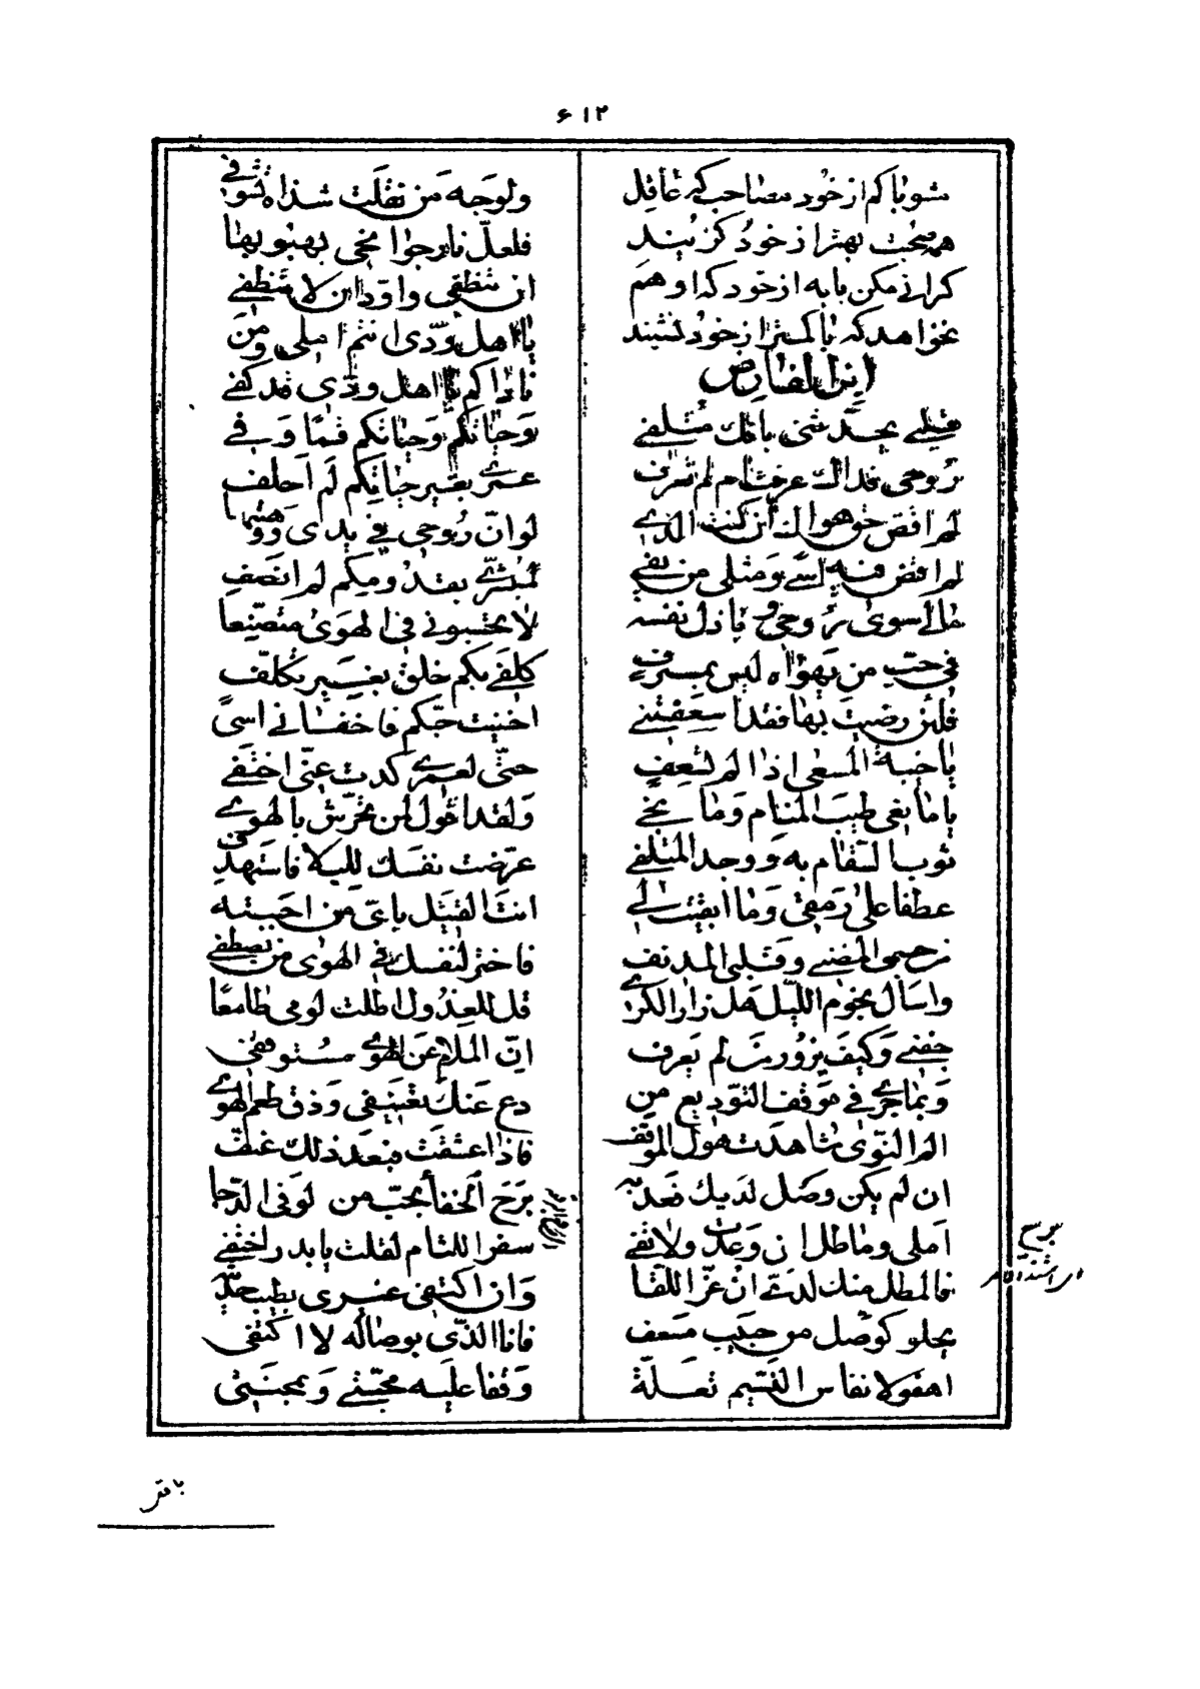 ٦١٢
مشو با کم از خود مصاحب که عاقل
همصحبت بهتر از خود گزیند
گرانی مکن با به از خود که او هم
نخواهد که با کمتر از خود نشیند
ابن الفارض
قلبی یحدّثنی بانّک متلفی
روحی فداک عرفت ام لم تعرف
لم اقض حق هواک ان کنت الذی
لم اقض فیه اسی و مثلی من یفی
مالی سوی روحی و باذل نفسه
فی حبّ من یهواه لیس بمسرف
فلئن رضیت بها فقد اسعفتنی
یا خیبة المسعی اذا لم تسعف
یا مانعی طیب المنام و مانحی
ثوب السّقام به و وجد المتلفی
عطفا علی رمقی و ما ابقیت لی
من جسمی المضنی و قلبی المدنف
واسأل نجوم اللّیل هل زار الکری
جفنی و کیف یزور من لم یعرف
و بما جری فی موقف التودیع من
الم النّوی شاهدت هول الموقف
ان لم یکن وصل لدیک فعد به
املی و ماطل ان وعدت ولا تفی
فالمطل منک لدیّ ان عزّ اللقا
یحلو کوصل من حبیب مسعف
اهفو لانفاس النّسیم تعلّة
ولوجه من نقلت شذاه تشوّفی
فلعلّ نار جوانحی بهبوبها
ان تنطفی و اودّ ان لا تنطفی
یا اهل ودّی انتم املی و من
ناداکم یا اهل ودّی قد کفی
وحیاتکم وحیاتکم قسما و فی
عمری بغیر حیاتکم لم احلف
لو انّ روحی فی یدی و وهبتها
لمبشّری بقدومکم لم انصف
لا تحسبونی فی الهوی متصنّعا
کلفی بکم خلق بغیر تکلّف
اخفیت حبّکم فاخفانی اسی
حتّی لعمری کدت عنّی اختفی
ولقد اقول لمن تحرّش بالهوی
عرّضت نفسک للبلا فاستهدف
انت القتیل بایّ من احببته
فاختر لنفسک فی الهوی من تصطفی
قل للعذول اطلت لومی طامعا
انّ الملام عن الهوی مستوقفی
دع عنک تعنیفی و ذق طعم الهوی
فاذا عشقت فبعد ذلک عنّف
برح الخفأ بحبّ من لو فی الدّجا
سفر اللثام لقلت یا بدر اختفی
وان اکتفی غیری بطیب خیاله
فانا الذّی بوصاله لا اکتفی
وقفا علیه محبّتی و بمحنتی
باقر